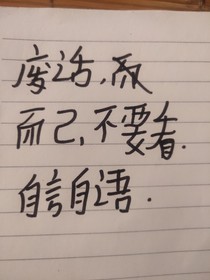 废话,而
而己,不要看.
自言自语.